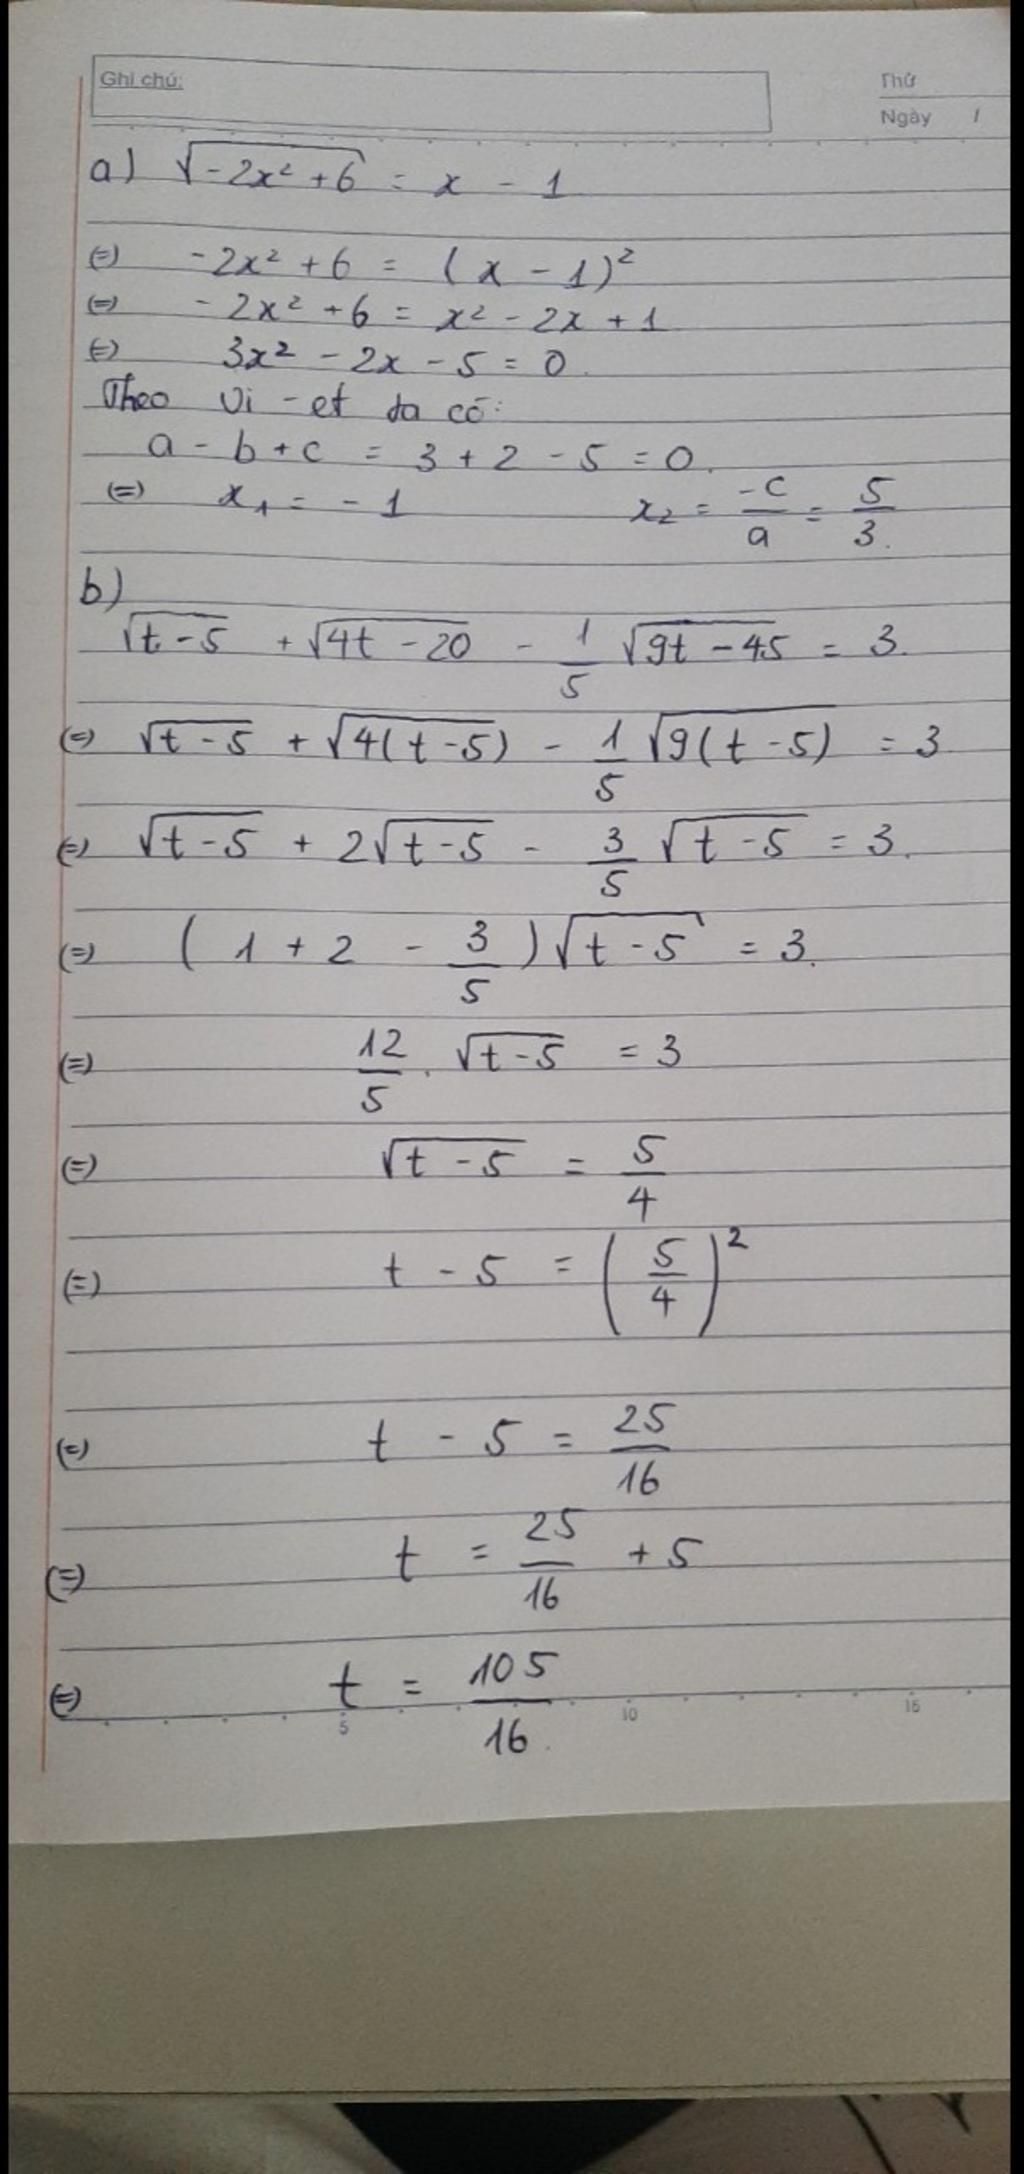 Ghi chú:
Thứ
Ngày /
a) √(-2x² + 6) = x - 1
(=) -2x² + 6 = (x - 1)²
(=) -2x² + 6 = x² - 2x + 1
(=) 3x² - 2x - 5 = 0.
Theo Vi-et ta có:
a - b + c = 3 + 2 - 5 = 0.
(=) x₁ = -1 x₂ = -c/a = 5/3.
b)
√(t - 5) + √(4t - 20) - 1/5 √(9t - 45) = 3.
(=) √(t - 5) + √(4(t - 5)) - 1/5 √(9(t - 5)) = 3
(=) √(t - 5) + 2√(t - 5) - 3/5 √(t - 5) = 3.
(=) (1 + 2 - 3/5)√(t - 5) = 3.
(=) 12/5 . √(t - 5) = 3
(=) √(t - 5) = 5/4
(=) t - 5 = (5/4)²
(=) t - 5 = 25/16
(=) t = 25/16 + 5
(=) t = 105/16.
5 10 15